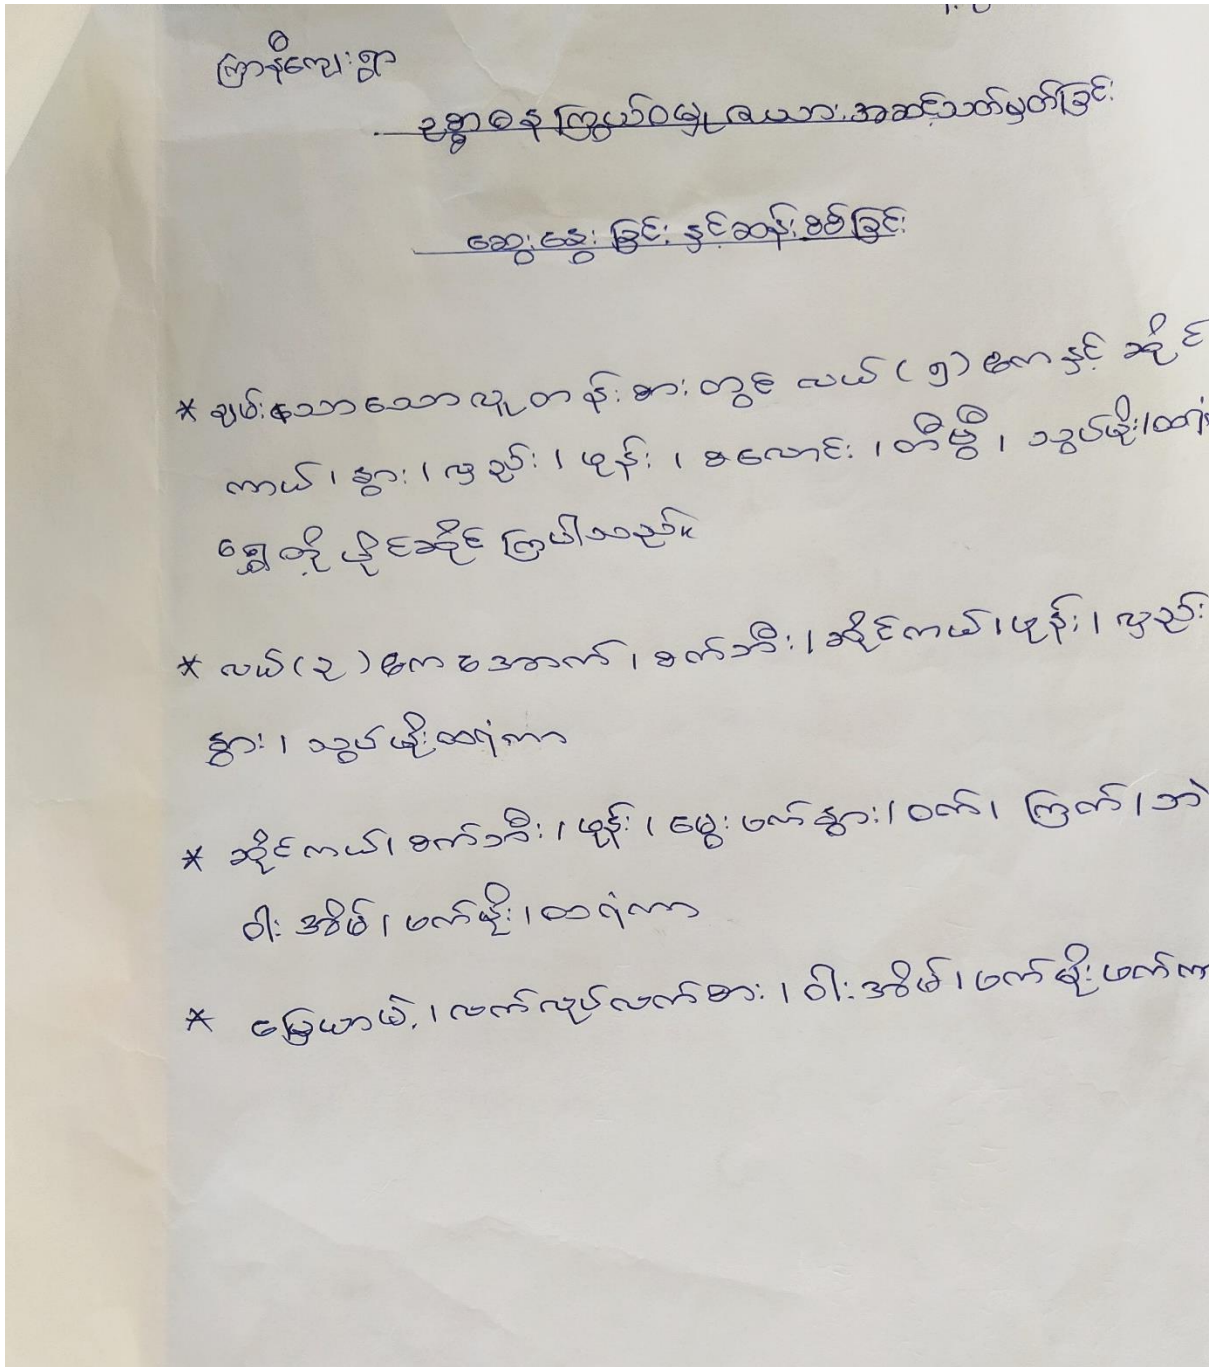 ကြာနီကျေးရွာ
ဥစ္စာဓနကြွယ်ဝမှု ဇယား အဆင့်သတ်မှတ်ခြင်း
ဆွေးနွေးခြင်း နှင့်ဆန်းစစ်ခြင်း
* ချမ်းသောသောလူတန်းစားတွင် လယ် (၅) ဧကနှင့် ဆိုင်
ကယ်၊ နွား၊ လှည်း၊ ဖုန်း၊ စလောင်း၊ တီဗွီ၊ သွပ်မိုး၊ထရံ
ရွှေတို့ ပိုင်ဆိုင်ကြပါသည်။
* လယ် (၃) ဧကအောက်၊ စက်ဘီး၊ ဆိုင်ကယ်၊ ဖုန်း၊ လှည်း
နွား၊ သွပ်မိုးထရံကာ
* ဆိုင်ကယ်၊ စက်ဘီး၊ ဖုန်း၊ မွေးဖက်နွား၊ ဝက်၊ ကြက်၊ ဘဲ
ဝါးအိမ်၊ ဖက်မိုး၊ ထရံကာ
* မြေယာမဲ့၊ လက်လုပ်လက်စား၊ ဝါးအိမ်၊ ဖက်မိုးဖက်ကာ